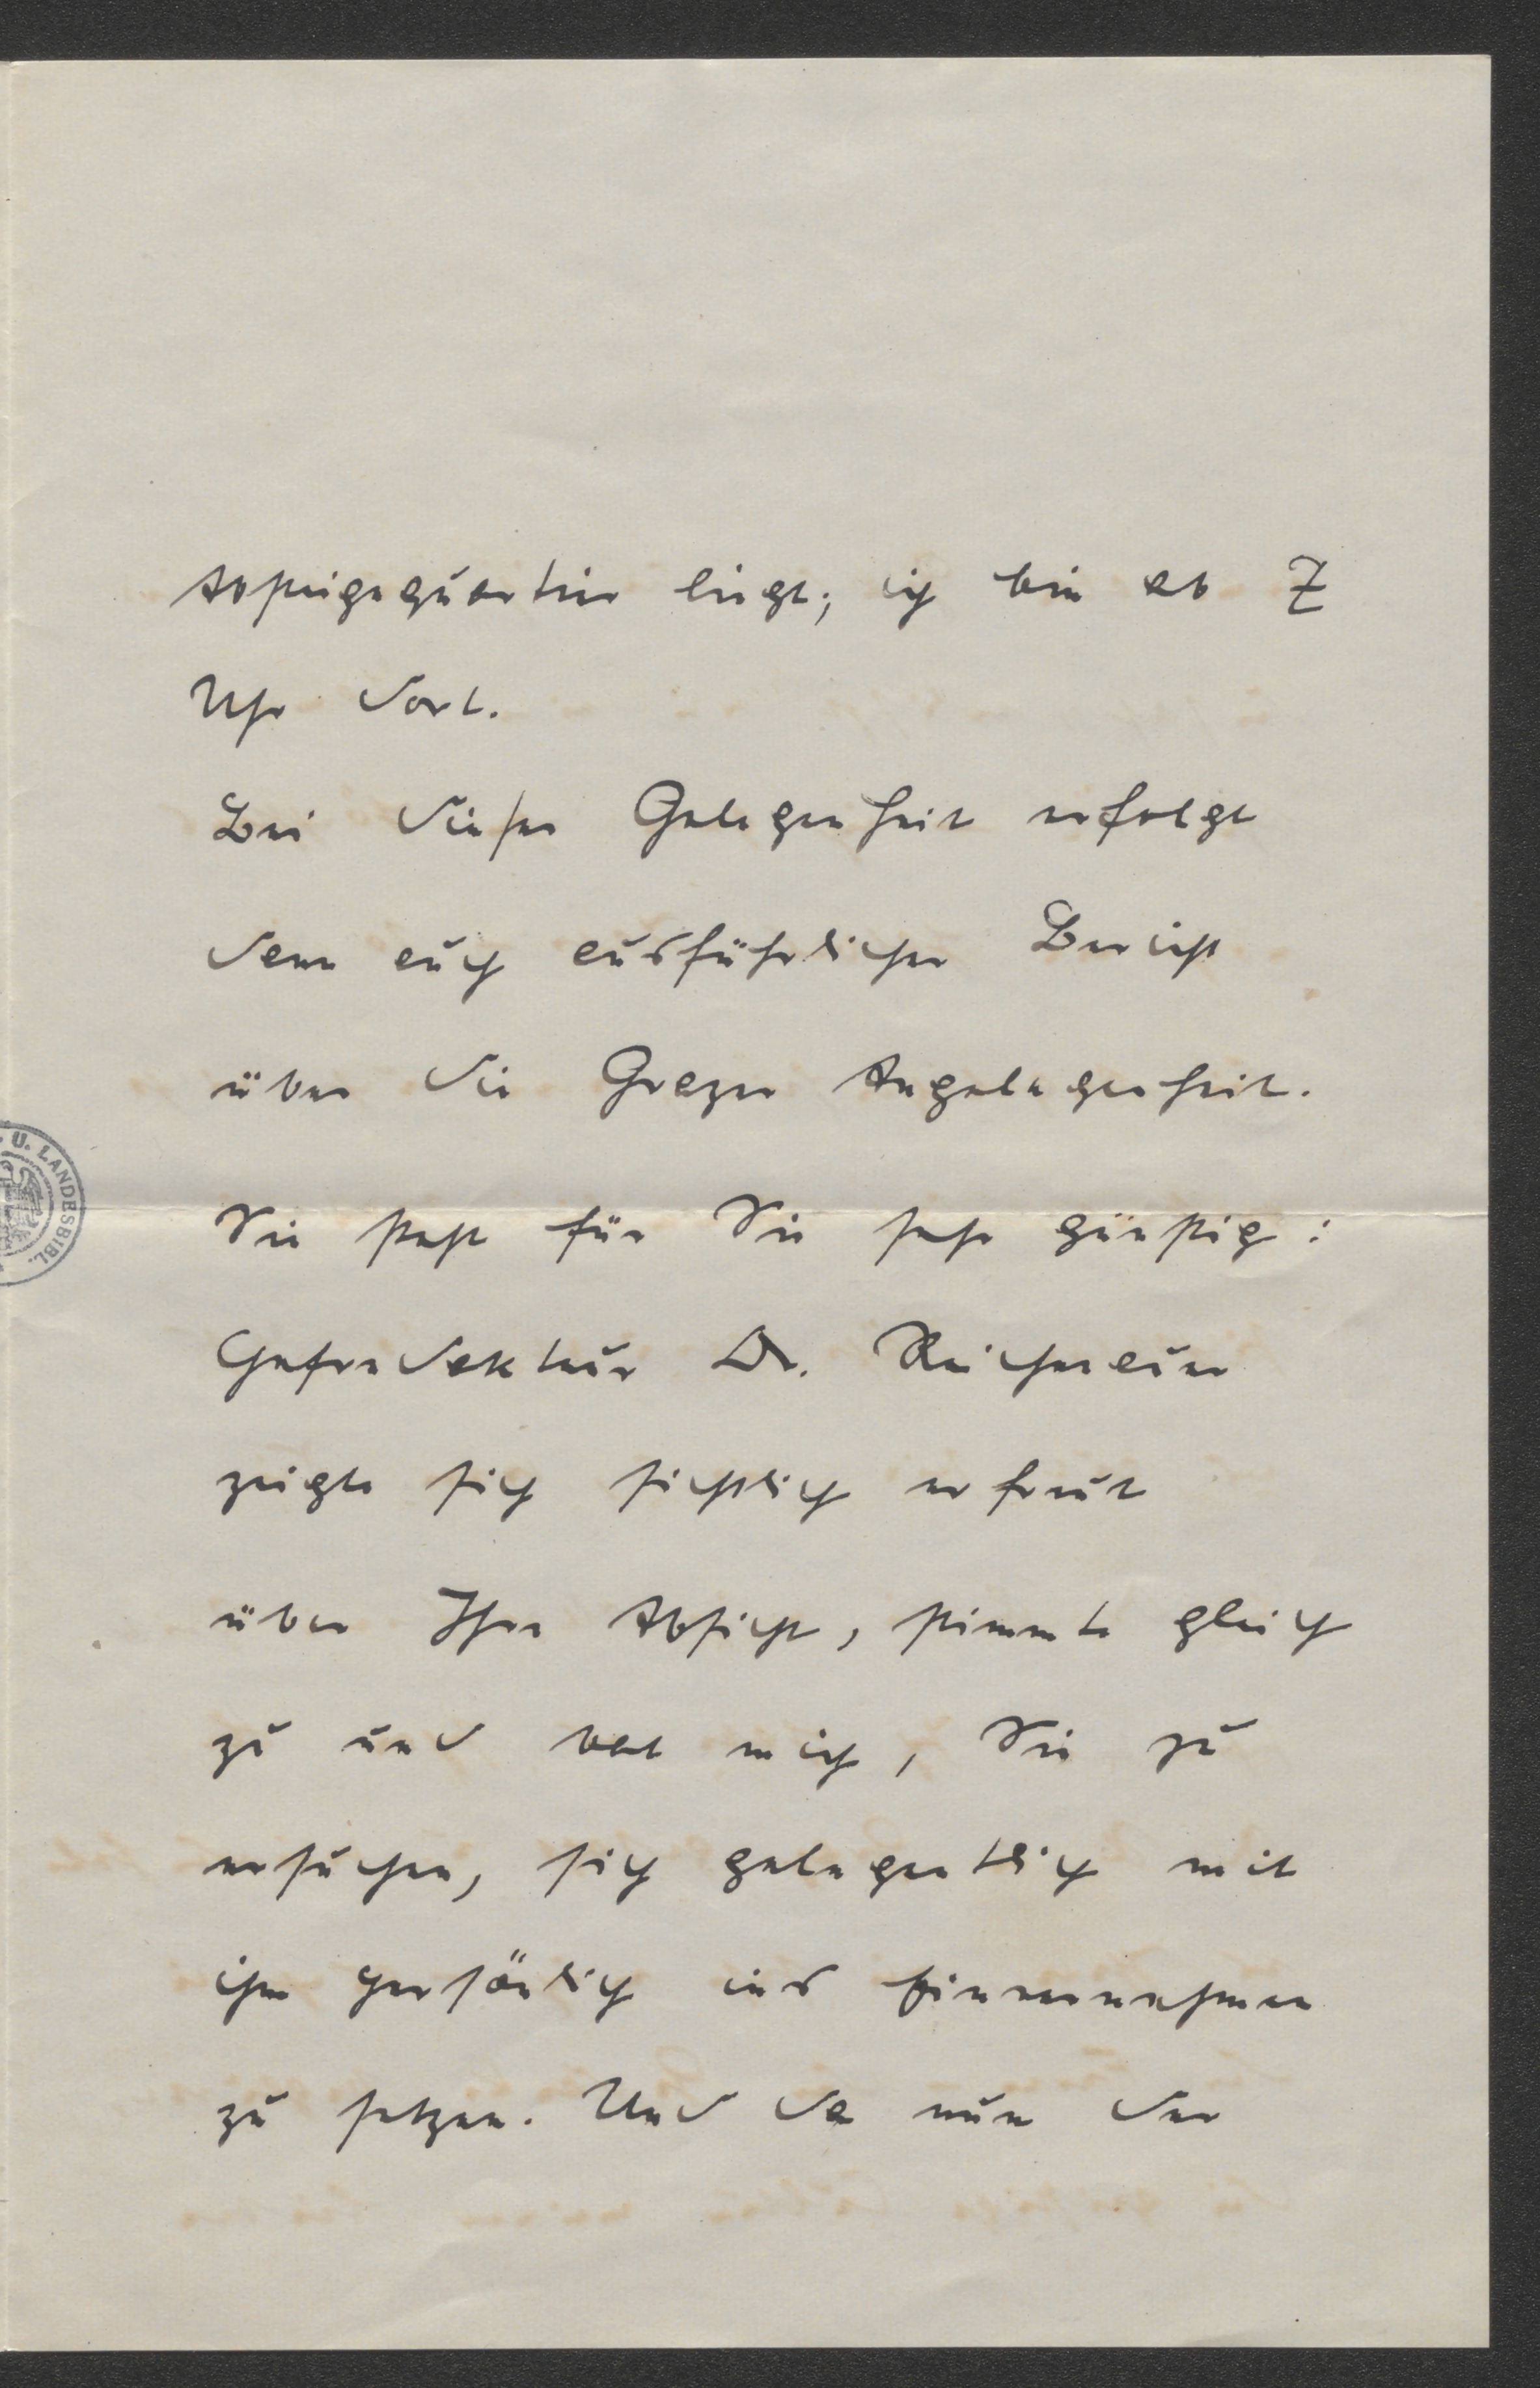 Absteigequartier liegt; ich bin ab 7
Uhr dort.
Bei dieser Gelegenheit erfolgt
dann auch ausführlicher Bericht
über die Grazer Angelegenheit.
Sie steht für Sie sehr günstig:
Chefredakteur Dr.
zeigte sich sichtlich erfreut
über Ihre Absicht, stimmte gleich
zu und bat mich, Sie zu
ersuchen, sich gelegentlich mit
ihm persönlich ins Einvernehmen
zu setzen. Und da nun der
U. LANDESBIBL.